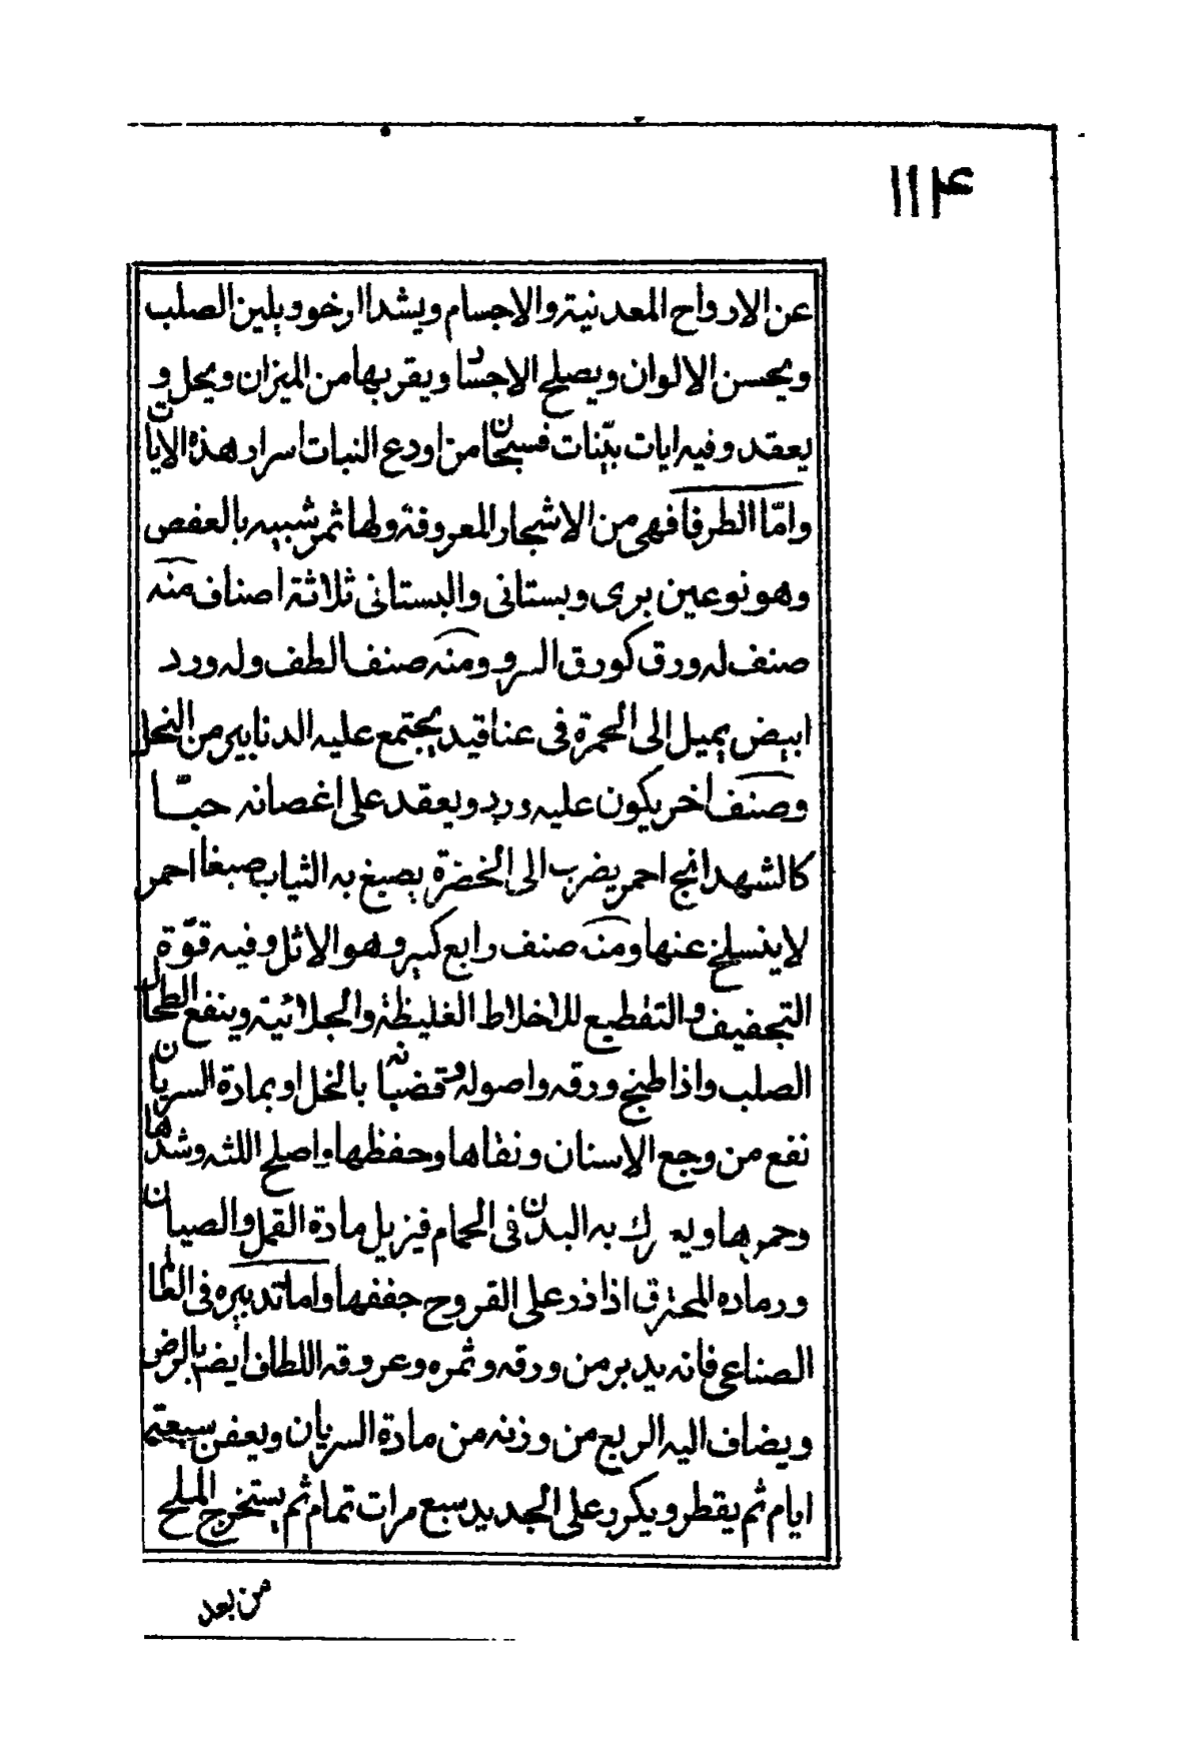 ١١٤
عن الارواح المعدنية والاجسام ويشد الرخو ويلين الصلب
ويحسن الالوان ويصلح الاجساد ويقربها من الميزان ويحل و
يعقد وفيه ايات بيّنات فسبحان من اودع النبات اسرار هذه الايات
وامّا الطرفا فهي من الاشجار المعروفة ولها ثمر شبيه بالعفص
وهو نوعين برى وبستانى والبستانى ثلاثة اصناف منه
صنف له ورق كورق السرو ومنه صنف الطف وله ورد
ابيض يميل الى الحمرة فى عناقيد يجتمع عليه الدنابير من النحل
وصنف اخر يكون عليه ورد ويعقد على اغصانه حبّا
كالشهدانج احمر يضرب الى الخضرة يصبغ به الثياب صبغا احمر
لا ينسلخ عنها ومنه صنف رابع كبير وهو الاثل وفيه قوّة
التجفيف والتقطيع للاخلاط الغليظة والجلائية وينفع الطحال
الصلب واذا طبخ ورقه واصوله وقضبانه بالخل او بمادة السريان
نفع من وجع الاسنان ونقاها وحفظها واصلح اللثه وشدها
وحمرها ويدرك به البدن فى الحمام فيزيل مادة القمل والصيبان
ورماده المحترق اذا ذر على القروح جففها واما تدبيره فى العالم
الصناعى فانه يدبر من ورقه وثمره وعروقه اللطاف ايضا بالرض
ويضاف اليه الربع من وزنه من مادة السريان ويعفن سبعة
ايام ثم يقطر ويكرر على الجديد سبع مرات تمام ثم يستخرج الملح
من بعد